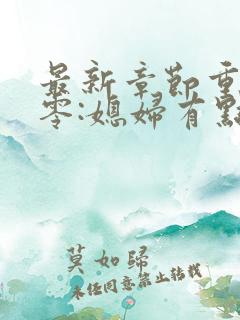 最新章節重
零:媳婦有點
莫如歸
未經同意禁止轉載